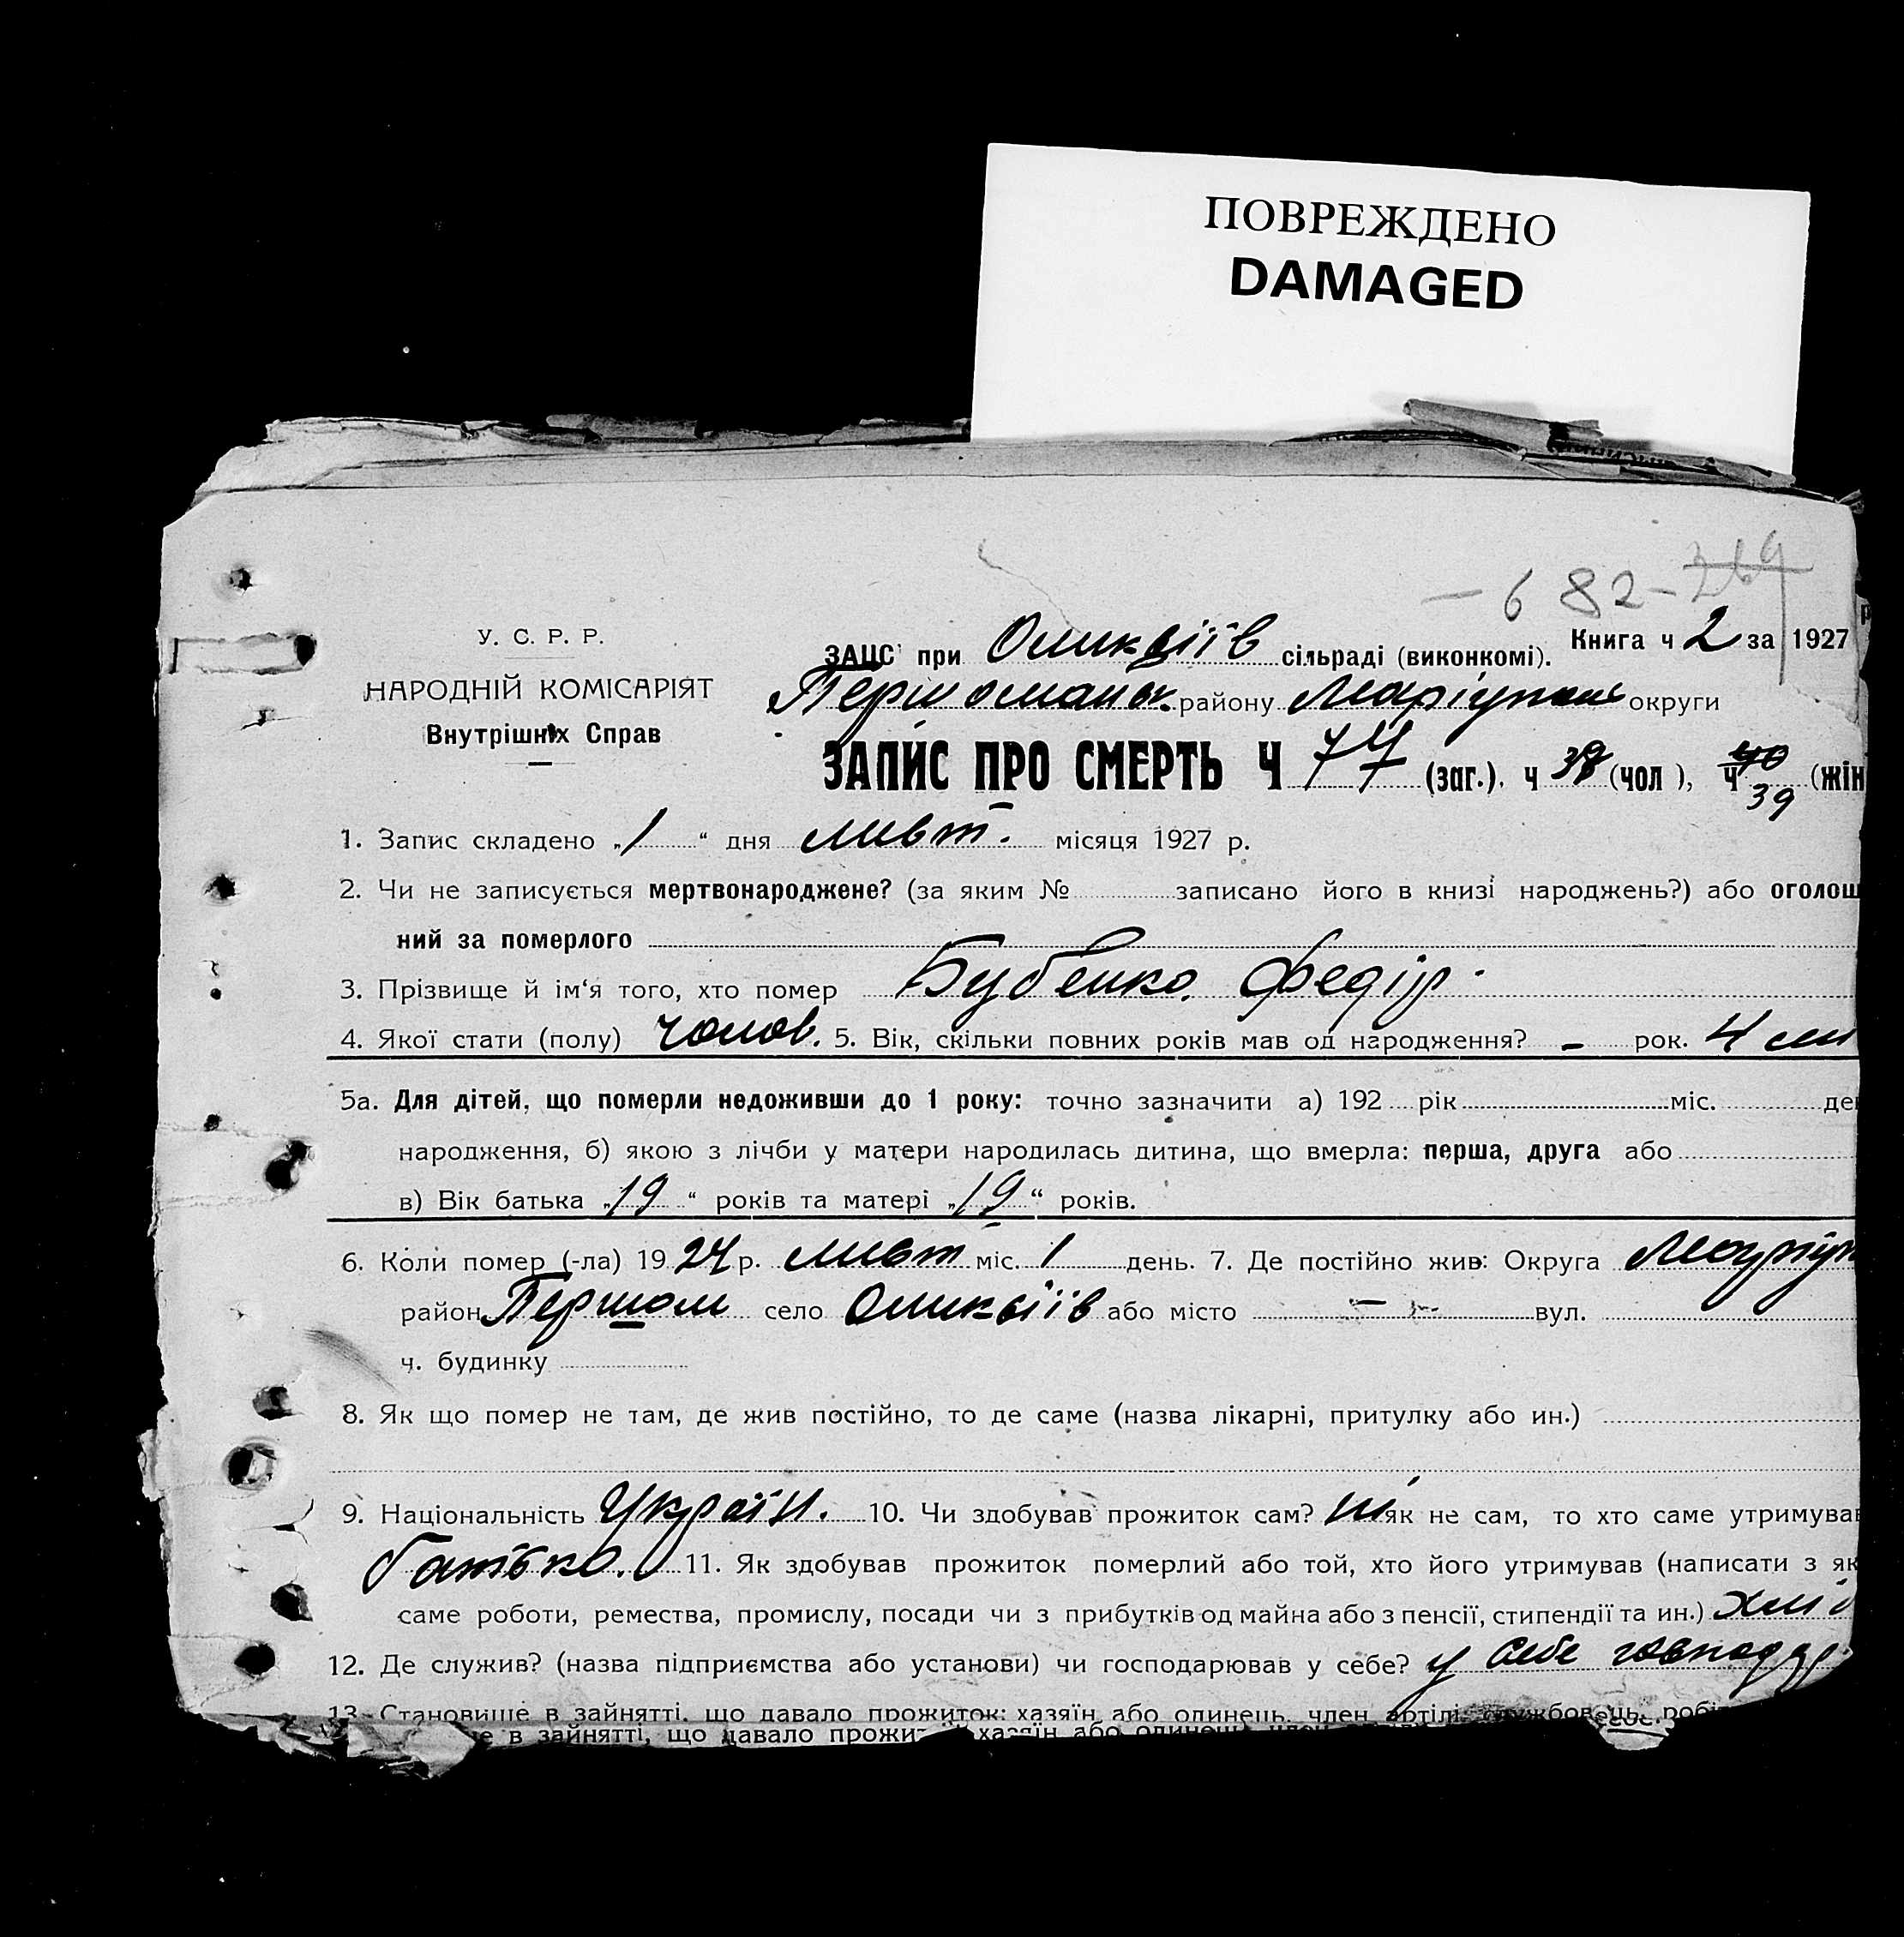 ПОВРЕЖДЕНО
DAMAGED
— 6 82 - 269
У. С. Р. Р.
НАРОДНІЙ КОМІСАРІЯТ
Внутрішніх Справ
Книга ч 2 за 1927
ЗАЦС при Оликвіїв сільраді (виконкомі).
Першомайск. району Маріупол округи
ЗАПИС ПРО СМЕРТЬ Ч 77 (заг.), ч 38 (чол), ч 40 39 (жін
1. Запис складено „1“ дня лист. місяця 1927 р.
2. Чи не записується мертвонароджене? (за яким № записано його в книзі народжень?) або оголош
ний за померлого
3. Прізвище й ім‘я того, хто помер Бубенко Федір.
4. Якої стати (полу) чолов. 5. Вік, скільки повних років мав од народження? - рок. 4 мі
5а. Для дітей, що померли недоживши до 1 року: точно зазначити а) 192 рік міс. ден
народження, б) якою з лічби у матери народилась дитина, що вмерла: перша, друга або
в) Вік батька „19“ років та матері „19“ років.
6. Коли помер (-ла) 1927 р. лист міс. 1 день. 7. Де постійно жив: Округа Маріуп
район Першом село Оликвіїв або місто — вул.
ч. будинку
8. Як що помер не там, де жив постійно, то де саме (назва лікарні, притулку або ин.)
9. Національність Україн. 10. Чи здобував прожиток сам? ні як не сам, то хто саме утримував
батько. 11. Як здобував прожиток померлий або той, хто його утримував (написати з як
саме роботи, ремества, промислу, посади чи з прибутків од майна або з пенсії, стипендії та ин.) хлі
12. Де служив? (назва підприємства або установи) чи господарював у себе? у себе господар
13. Становище в зайнятті, що давало прожиток: хазяїн або одинець, член артілі, службовець, робі
е в зайнятті, що давало прожит хазяїн або одинець член